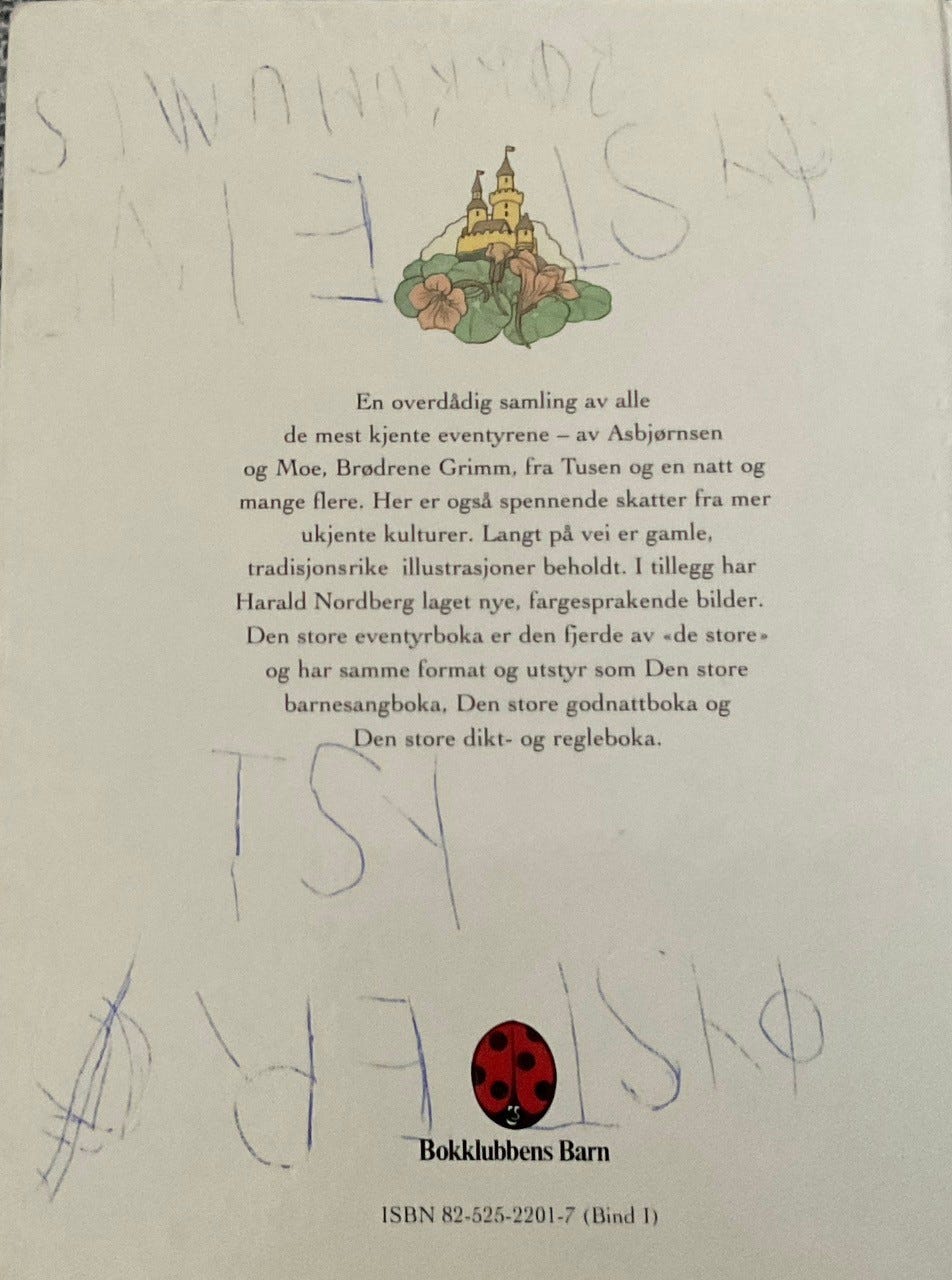 ØYSTEIN
En overdådig samling av alle
de mest kjente eventyrene – av Asbjørnsen
og Moe, Brødrene Grimm, fra Tusen og en natt og
mange flere. Her er også spennende skatter fra mer
ukjente kulturer. Langt på vei er gamle,
tradisjonsrike illustrasjoner beholdt. I tillegg har
Harald Nordberg laget nye, fargesprakende bilder.
Den store eventyrboka er den fjerde av «de store»
og har samme format og utstyr som Den store
barnesangboka, Den store godnattboka og
Den store dikt- og regleboka.
TSY
ØYSTER
Bokklubbens Barn
ISBN 82-525-2201-7 (Bind I)